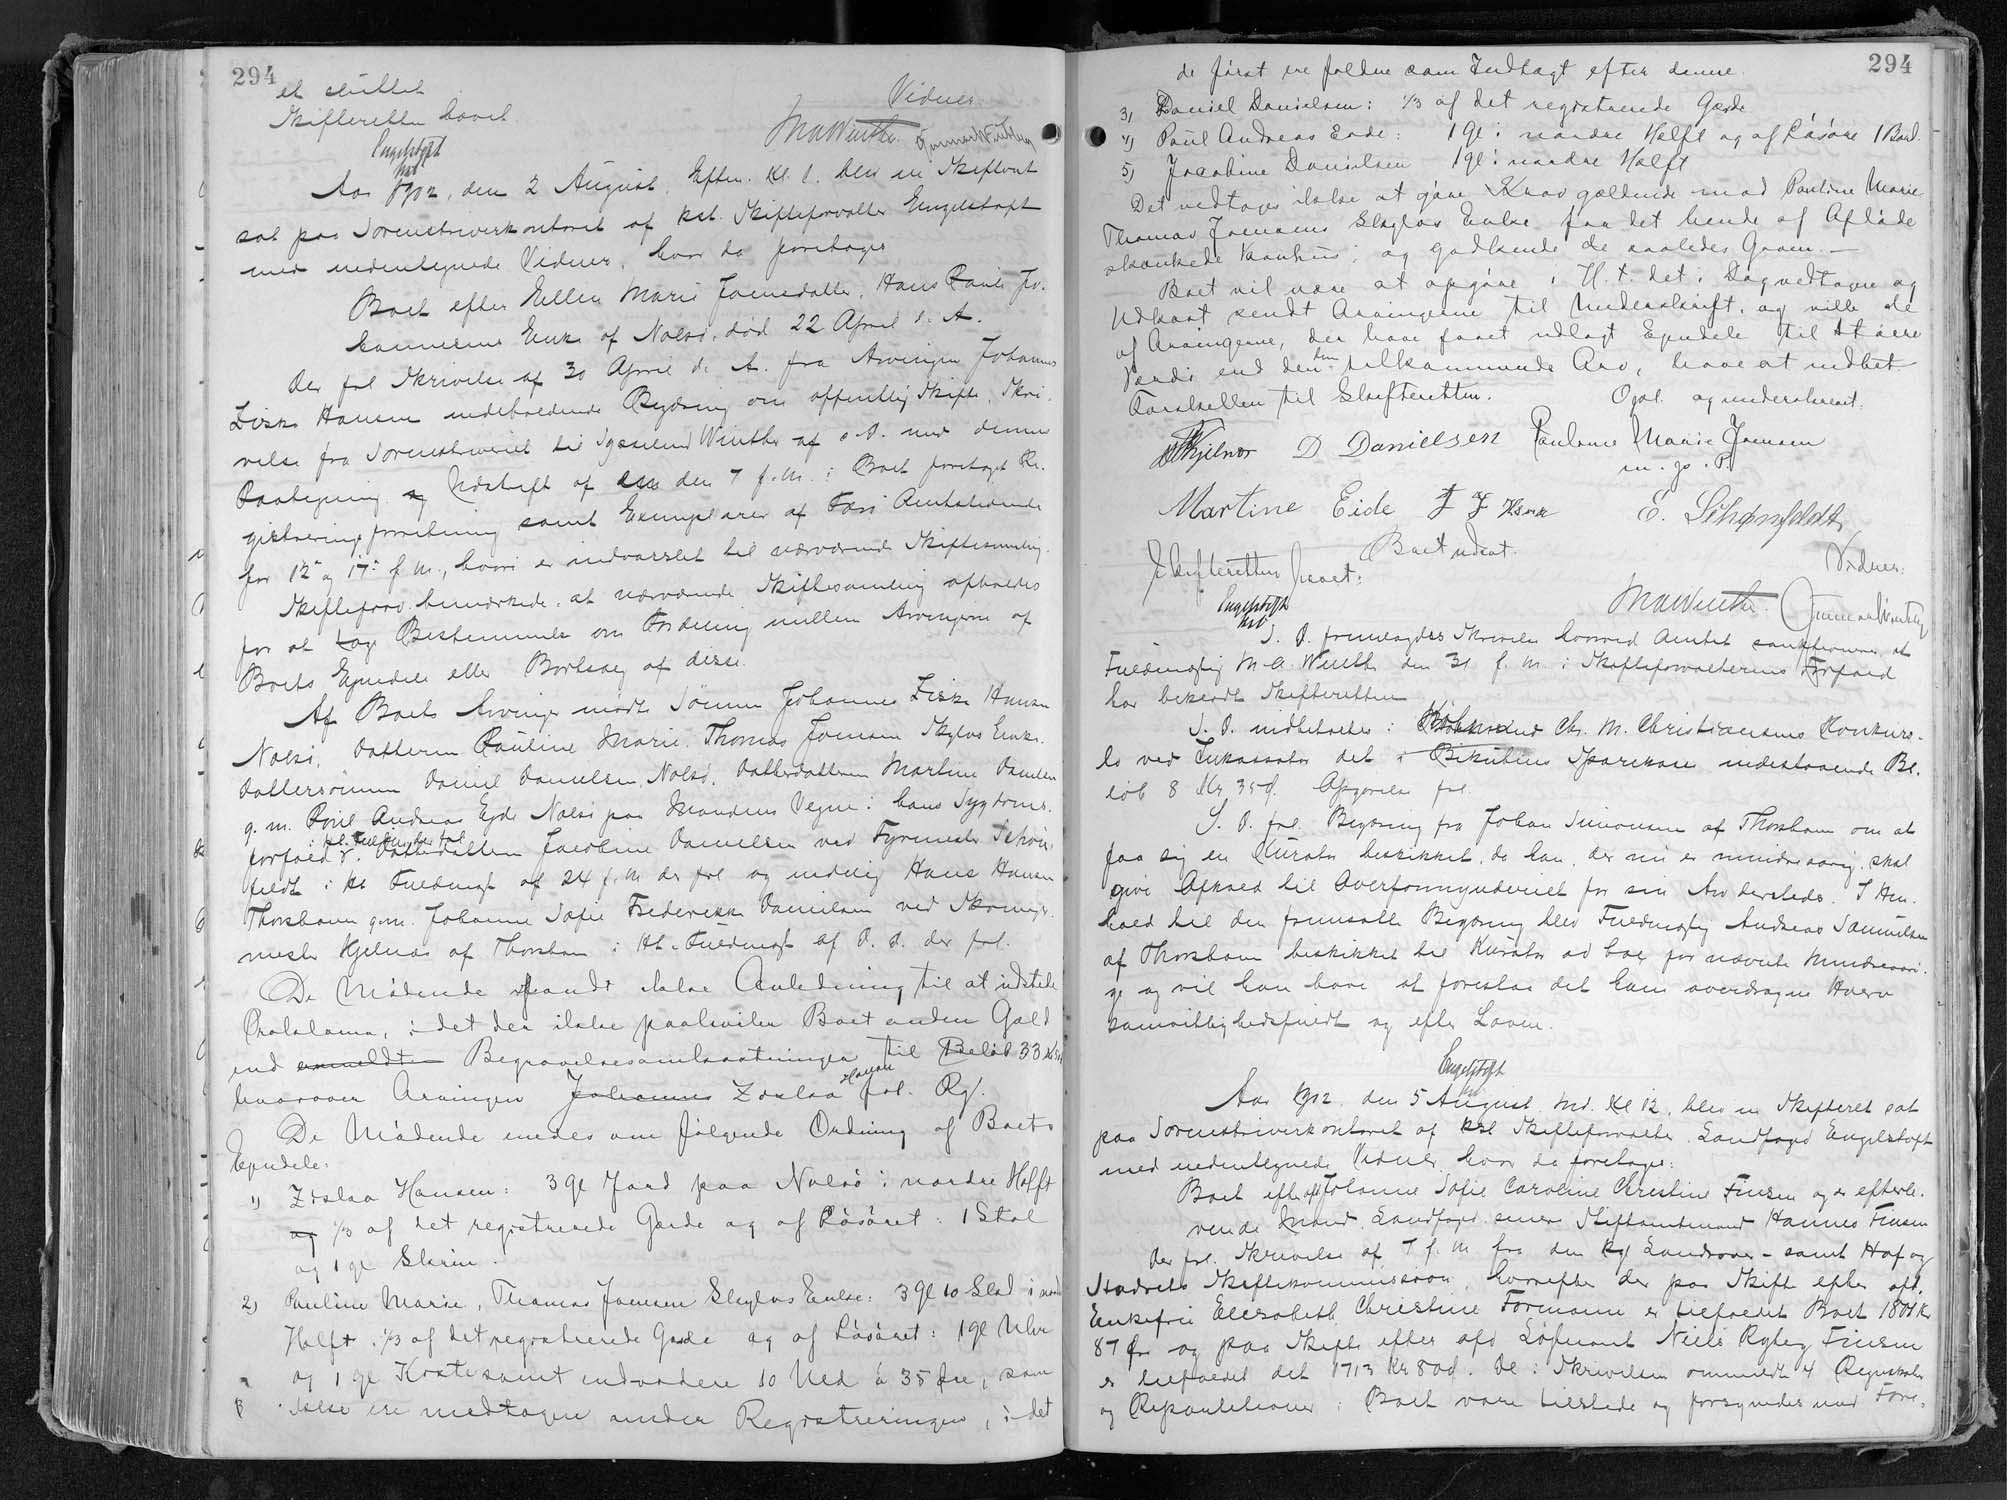 294
et sluttet
Skifteretten hævet
Vidner.
Engelstoft
MAWinther.
Aar 1902, den 2 August, Efter. Kl. 1. blev en Skifteret
sat paa Sorenskriverkontoret af kst. Skifteforvalter Engelstoft
med undertegnede Vidner, hvor da foretoges
Boet efter Ellen Marie Joensdatter, Hans Pauli Jo-
hannesens Enke af Nolsö, död 22 April d. A.
Der fol Skrivelse af 30 April d. A. fra Arvingen Johannes
Ziska Hansen indeholdende Begæring om offentlig Skifte, Skri-
velse fra Sorenskriveriet til Sysselmd Winther af s. D. med dennes
Paategning og Udskrift af den 7 f. M. i Boet foretaget Re-
gistreringsforretning samt Exemplarer af Færö Amtstidende
for 12te og 17de f. M., hvori er indvarslet til nærværende Skiftesamling.
Skifteforv. bemærkede, at nærværende Skiftesamling afholdes
for at tage Bestemmelse om Fordeling mellem Arvingerne af
Boets Ejendele eller Bortsalg af disse.
Af Boets Arvinger mødte Sönnen Johannes Ziska Hansen
Nolsö, Datteren Pauline Marie, Thomas Joensen Skylvs Enke.
Dattersönnen Daniel Danielsen, Nolsö. Datterdatteren Martine Danielsen
g. m. Poul Andreas Ejde Nolsö paa Mandens Vegne i hans Sygdoms-
forfald. Datterdatteren Jacobine Danielsen ved Fyrmester Schön-
feldt i Hl. Fuldmagt af 24 f. M. der fol og endelig Hans Hansen
Thorshavn g. m. Johanne Sofie Frederikke Danielsen ved Skomager-
mester Kjelnæs af Thorshavn i Hl. Fuldmagt af D. D. der fol.
De Mødende fandt ikke Anledning til at udstede
Proklama, i det der ikke paahviler Boet anden Gæld
end anmeldte Begravelsesomkostninger til Beløb 33 Kr
hvorover Arvingen Johannes Ziskaa Hansen fol. Rg.
De Mødende enedes om følgende Ordning af Boets
Ejendele.
1) Ziskaa Hansen: 3 gl Jord paa Nolsö i nordre Helft
og 1/3 af det registrerede Gods og af Løsøret: 1 Stol
og 1 gl Skrin.
2) Pauline Marie, Thomas Joensen Skylvs Enke: 3 gl 10 Skd i nordre
Helft. 1/3 af det registrerede Gods og af Løsøret: 1 gl Uhr
og 1 gl Kiste samt endvidere 10 Uld à 35 Øre, som
ikke ere medtagne under Registreringen, i det
294
de først ere faldne som Indtægt efter denne.
3) Daniel Danielsen: 1/3 af det registrerede Gods
4) Paul Andreas Eide: 1 gl i nordre Helft og af Løsøre 1 Bord.
5) Jacobine Danielsen 1 gl i nordre Helft
Det vedtoges ikke at gøre Krav gældende mod Pauline Marie
Thomas Joensens Skylvs Enke for det hende af Afdøde
skænkede Vaanhus; og godkende de saaledes Gaven.—
Boet vil være at opgøre i H. t. det i Dag vedtagne og
Udkast sendt Arvingerne til Underskrift, og ville de
af Arvingerne, der have faaet udlagt Ejendele til større
Værdi end den dem tilkommende Arv, have at indbet
Forskellen til Skifteretten. Opl. og underskrevet.
Kjelnæs D Danielsen Pauline Marie Joensen
m. f. P.
Martine Eide J Z Hansen E. Schønfeldt
Boet udsat.
Skifteretten hævet:
Vidner:
Engelstoft
MAWinther.
S. D. fremlagdes Skrivelse hvorved Amtet sanktionerer at
Fuldmægtig M. A. Winther den 31 f. M. i Skifteforvalterens Forfald
har beklædt Skifteretten
S. D. indbetaltes i Købmand Chr. M. Christiansens Konkurs-
bo ved Inkassator det i Bikubens Sparekasse indestaaende Be-
løb 8 Kr 35 Ø. Afgørelse fol.
S. D. fol. Begæring fra Johan Simonsen af Thorshavn om at
faa sig en Kurator beskikket, da han, der nu er mindreaarig, skal
give Afkald til Overformynderiet for sin Arv dersteds. I Hen-
hold til den fremsatte Begæring blev Fuldmægtig Andreas Samuelsen
af Thorshavn beskikket til Kurator ad hoc for nævnte Mindreaari-
ge og vil han have at forestaa det ham overdragne Hverv
samvittighedsfuldt og efter Loven.
Engelstoft
Aar 1902. den 5 August. Md. Kl 12, blev en Skifteret sat
paa Sorenskriverkontoret af kst Skifteforvalter, Landfoged Engelstoft
med undertegnede Vidner hvor da foretoges:
Boet efter afd Johanne Sofie Caroline Christine Finsen og efterle-
vende Mand, Landfoged senere Stiftamtmand Hannes Finsen
Der fol. Skrivelse af 7 f. M. fra den kgl Landsover- samt Hof og
Stadsrets Skiftekommission, hvorefter der paa Skifte efter afd.
Enkefrue Elisabeth Christine Formann er tilfaldet Boet 1801 Kr
87 Øre og paa Skifte efter afd Løjtnant Niels Ryberg Finsen
er tilfaldet det 1713 Kr 80 Ø. De i Skrivelsen ommeldte 4 Regnskaber
og Repartitioner i Boet vare tilstede og forsynedes med Fore-